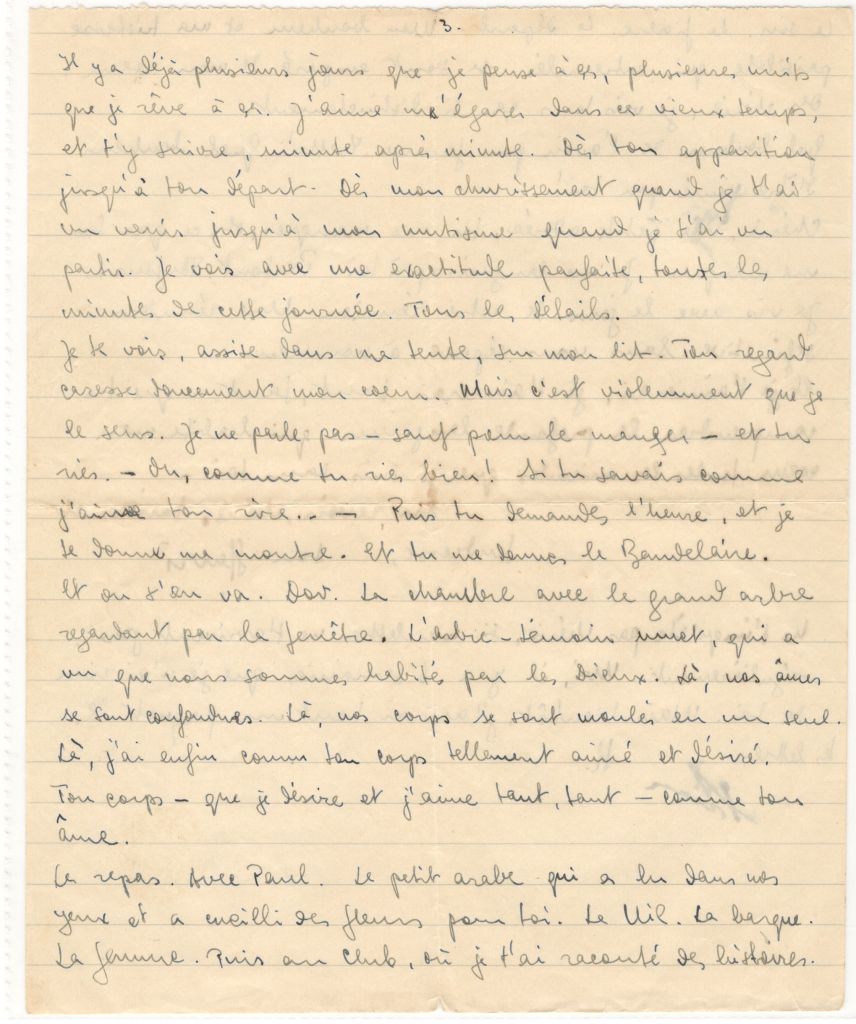 3.
Il y a déjà plusieurs jours que je pense à ça, plusieures nuits
que je rêve à ça. J'aime m'égarer dans ces vieux temps,
et t'y suivre, minute après minute. Dès ton apparition
jusqu'à ton départ. Dès mon ahurissement quand je t'ai
vu venir jusqu'à mon mutisme quand je t'ai vu
partir. Je vois avec une exactitude parfaite, toutes les
minutes de cette journée. Tous les détails.
Je te vois, assise dans ma tente, sur mon lit. Ton regard
caresse doucement mon coeur. Mais c'est violemment que je
le sens. Je ne parle pas – sauf pour le manger – et tu
ries. – Oh, comme tu ries bien! Si tu savais comme
j'aime ton rire.. – Puis tu demandes l'heure, et je
te donne ma montre. Et tu me donnes le Baudelaire.
Et on s'en va. Dov. La chambre avec le grand arbre
regardant par la fenêtre. L'arbre-témoin muet, qui a
vu que nous sommes habités par les Dieux. Là, nos âmes
se sont confondues. Là, nos corps se sont moulés en un seul.
Là, j'ai enfin connu ton corps tellement aimé et désiré.
Ton corps – que je désire et j'aime tant, tant – comme ton
âme.
Le repas. Avec Paul. Le petit arabe qui a lu dans nos
yeux et a cueilli des fleurs pour toi. Le Nil. La barque.
La femme. Puis au Club, où je t'ai raconté des histoires.